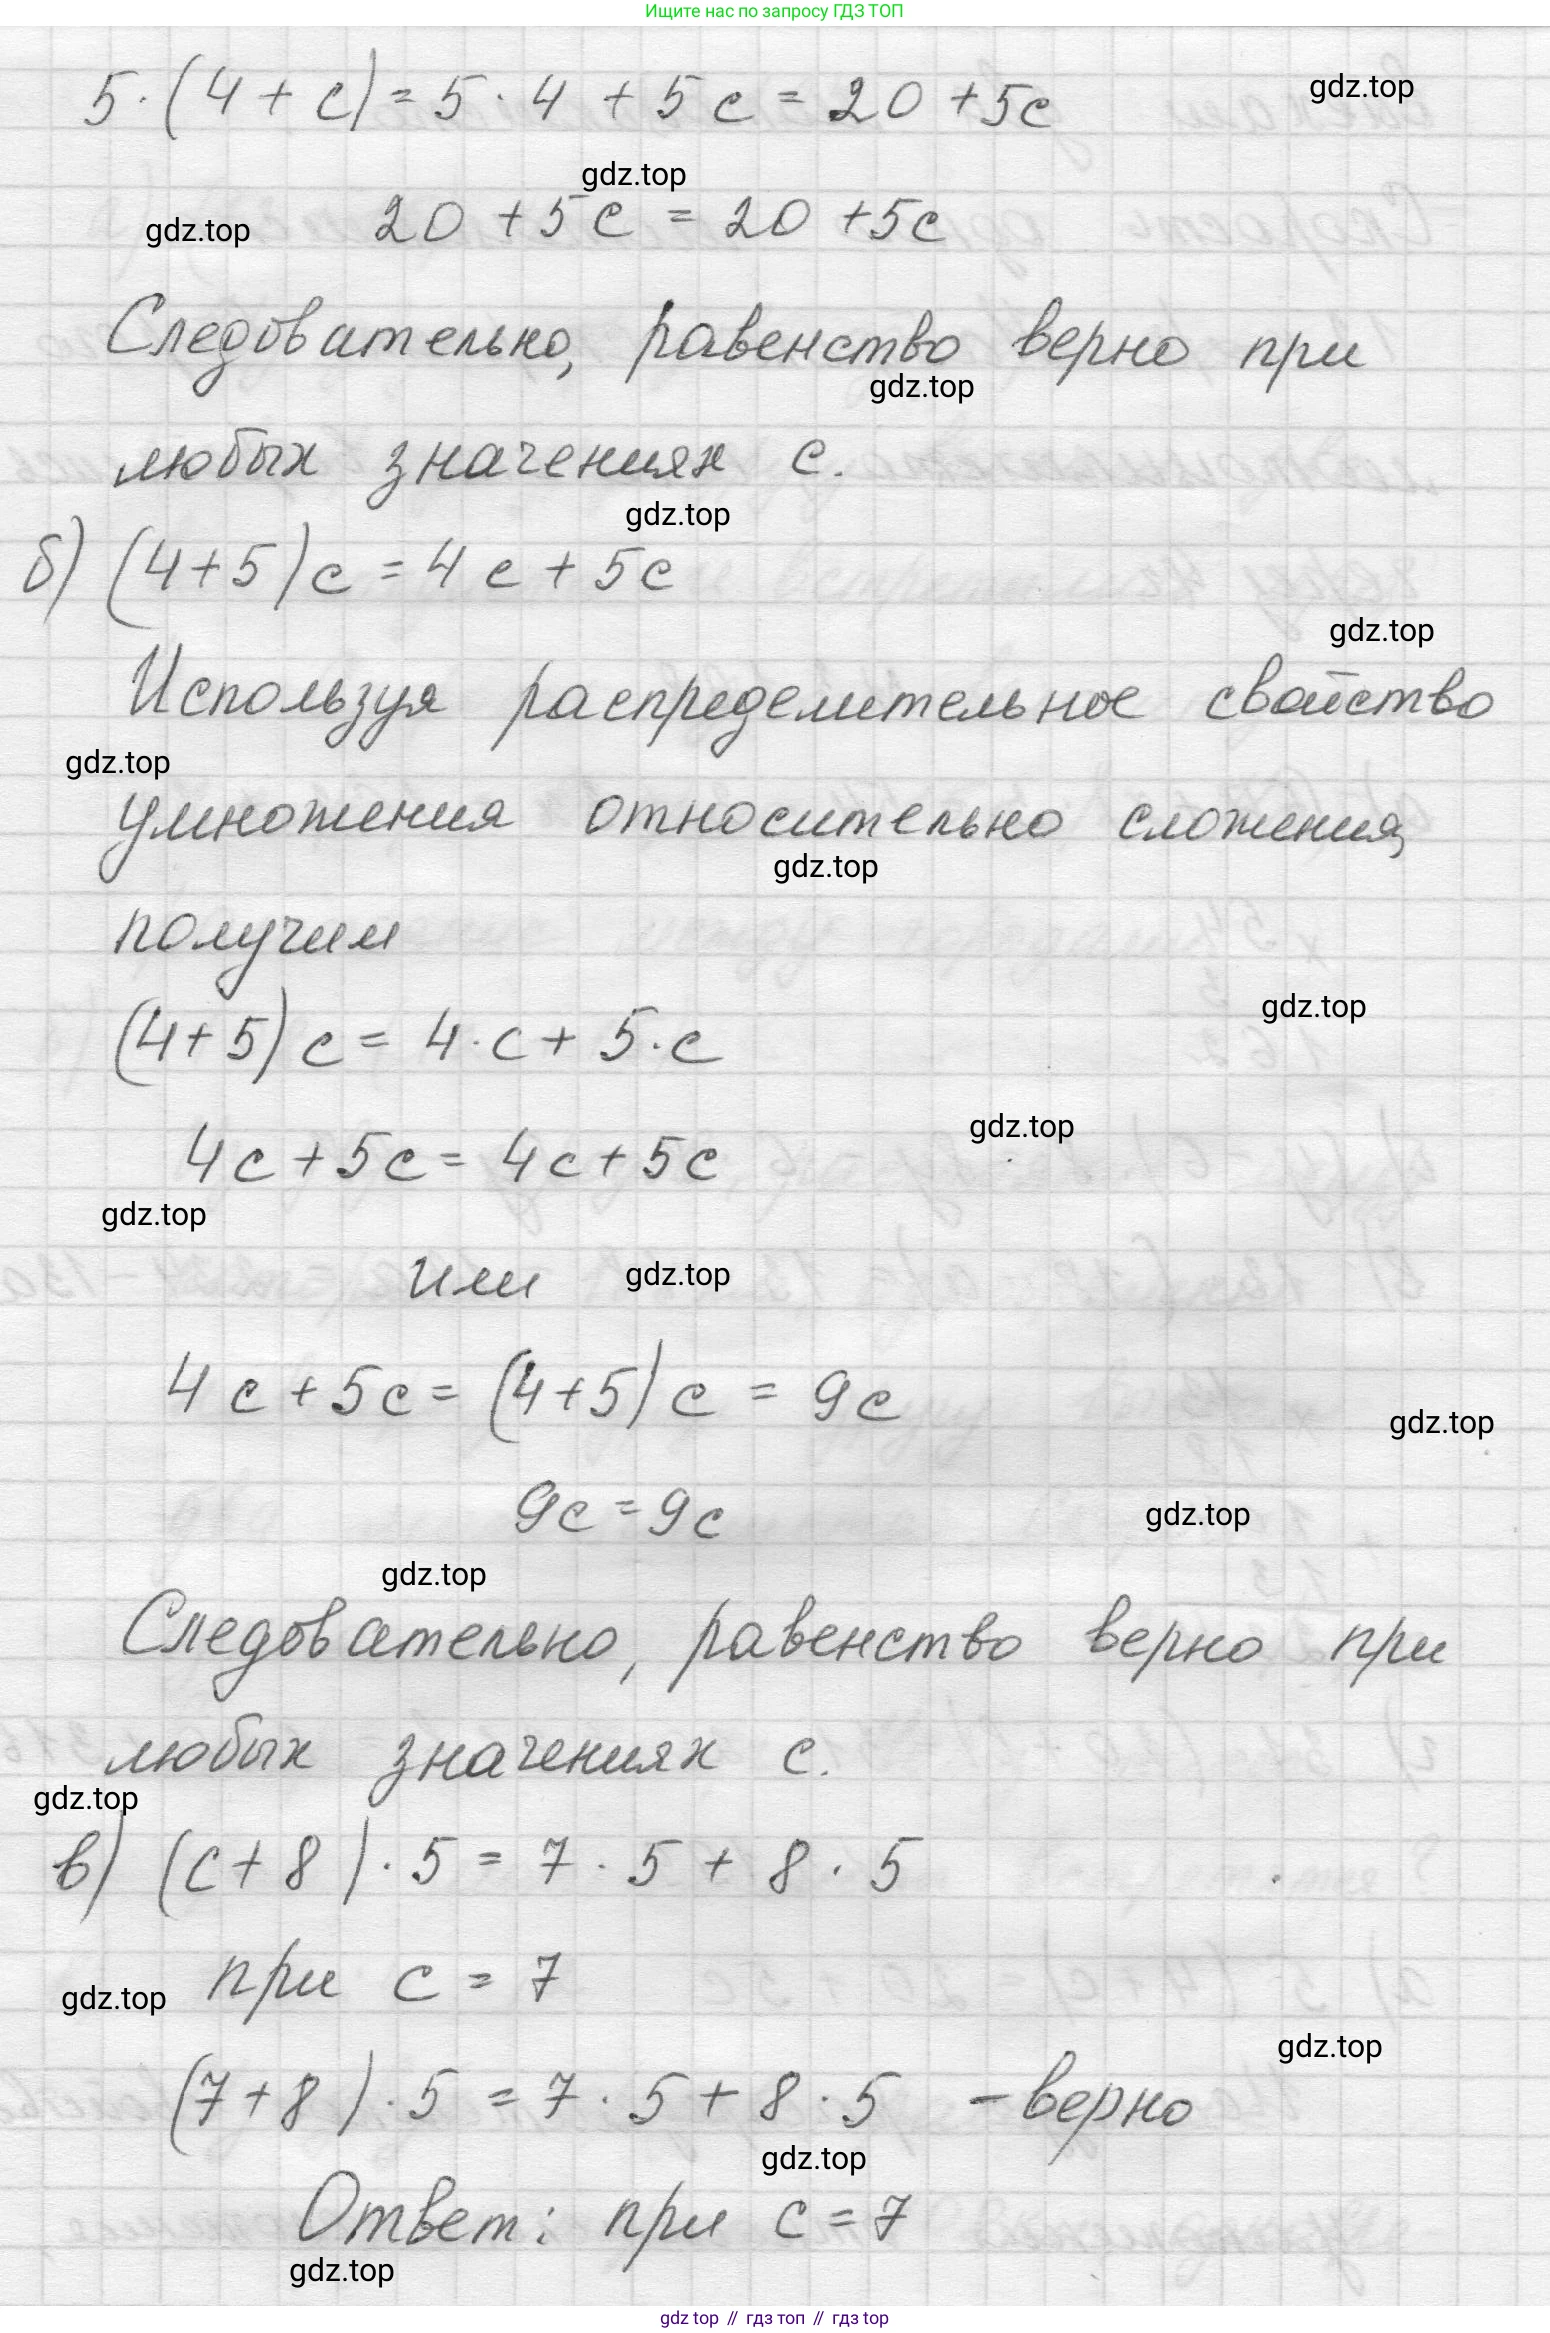 Ищите нас по запросу ГДЗ ТОП
5·(4+c)=5·4+5c=20+5c
gdz.top
gdz.top
gdz.top
20+5c=20+5c
Следовательно, равенство верно при
gdz.top
любых значениях c.
gdz.top
б) (4+5)c=4c+5c
gdz.top
Используя распределительное свойство
gdz.top
умножения относительно сложения,
gdz.top
получим
gdz.top
(4+5)c=4·c+5·c
gdz.top
4c+5c=4c+5c
gdz.top
или
gdz.top
4c+5c=(4+5)c=9c
gdz.top
9c=9c
gdz.top
gdz.top
Следовательно, равенство верно при
любых значениях c.
gdz.top
в) (c+8)·5=7·5+8·5
при c=7
gdz.top
gdz.top
(7+8)·5=7·5+8·5 -верно
gdz.top
Ответ: при c=7
gdz.top
gdz top // гдз топ // гдз top